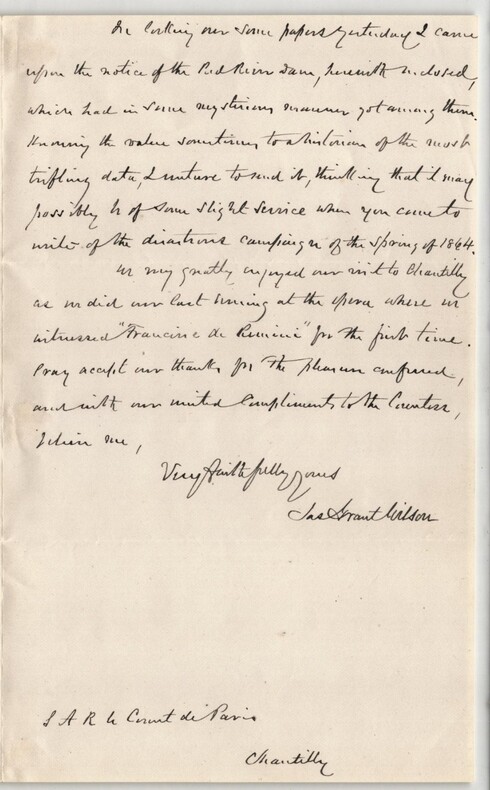 In looking over some papers yesterday I came
upon the notice of the Red River Dam, herewith inclosed,
which had in some mysterious manner got among them.
Knowing the value sometimes to a historian of the most
trifling data, I venture to send it, thinking that it may
possibly be of some slight service when you come to
write of the disastrous campaign of the Spring of 1864.
We very greatly enjoyed our visit to Chantilly
as we did our last evening at the opera where we
witnessed "Francoise de Rimini" for the first time.
Pray accept our thanks for the pleasure conferred,
and with our united compliments to the Countess,
believe me,
Very faithfully yours
Jas Grant Wilson
S A R le Count de Paris
Chantilly